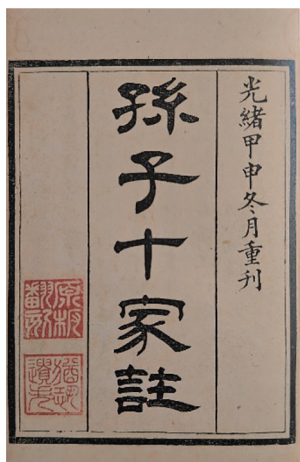 光緒甲申冬月重刊
孫子十家註